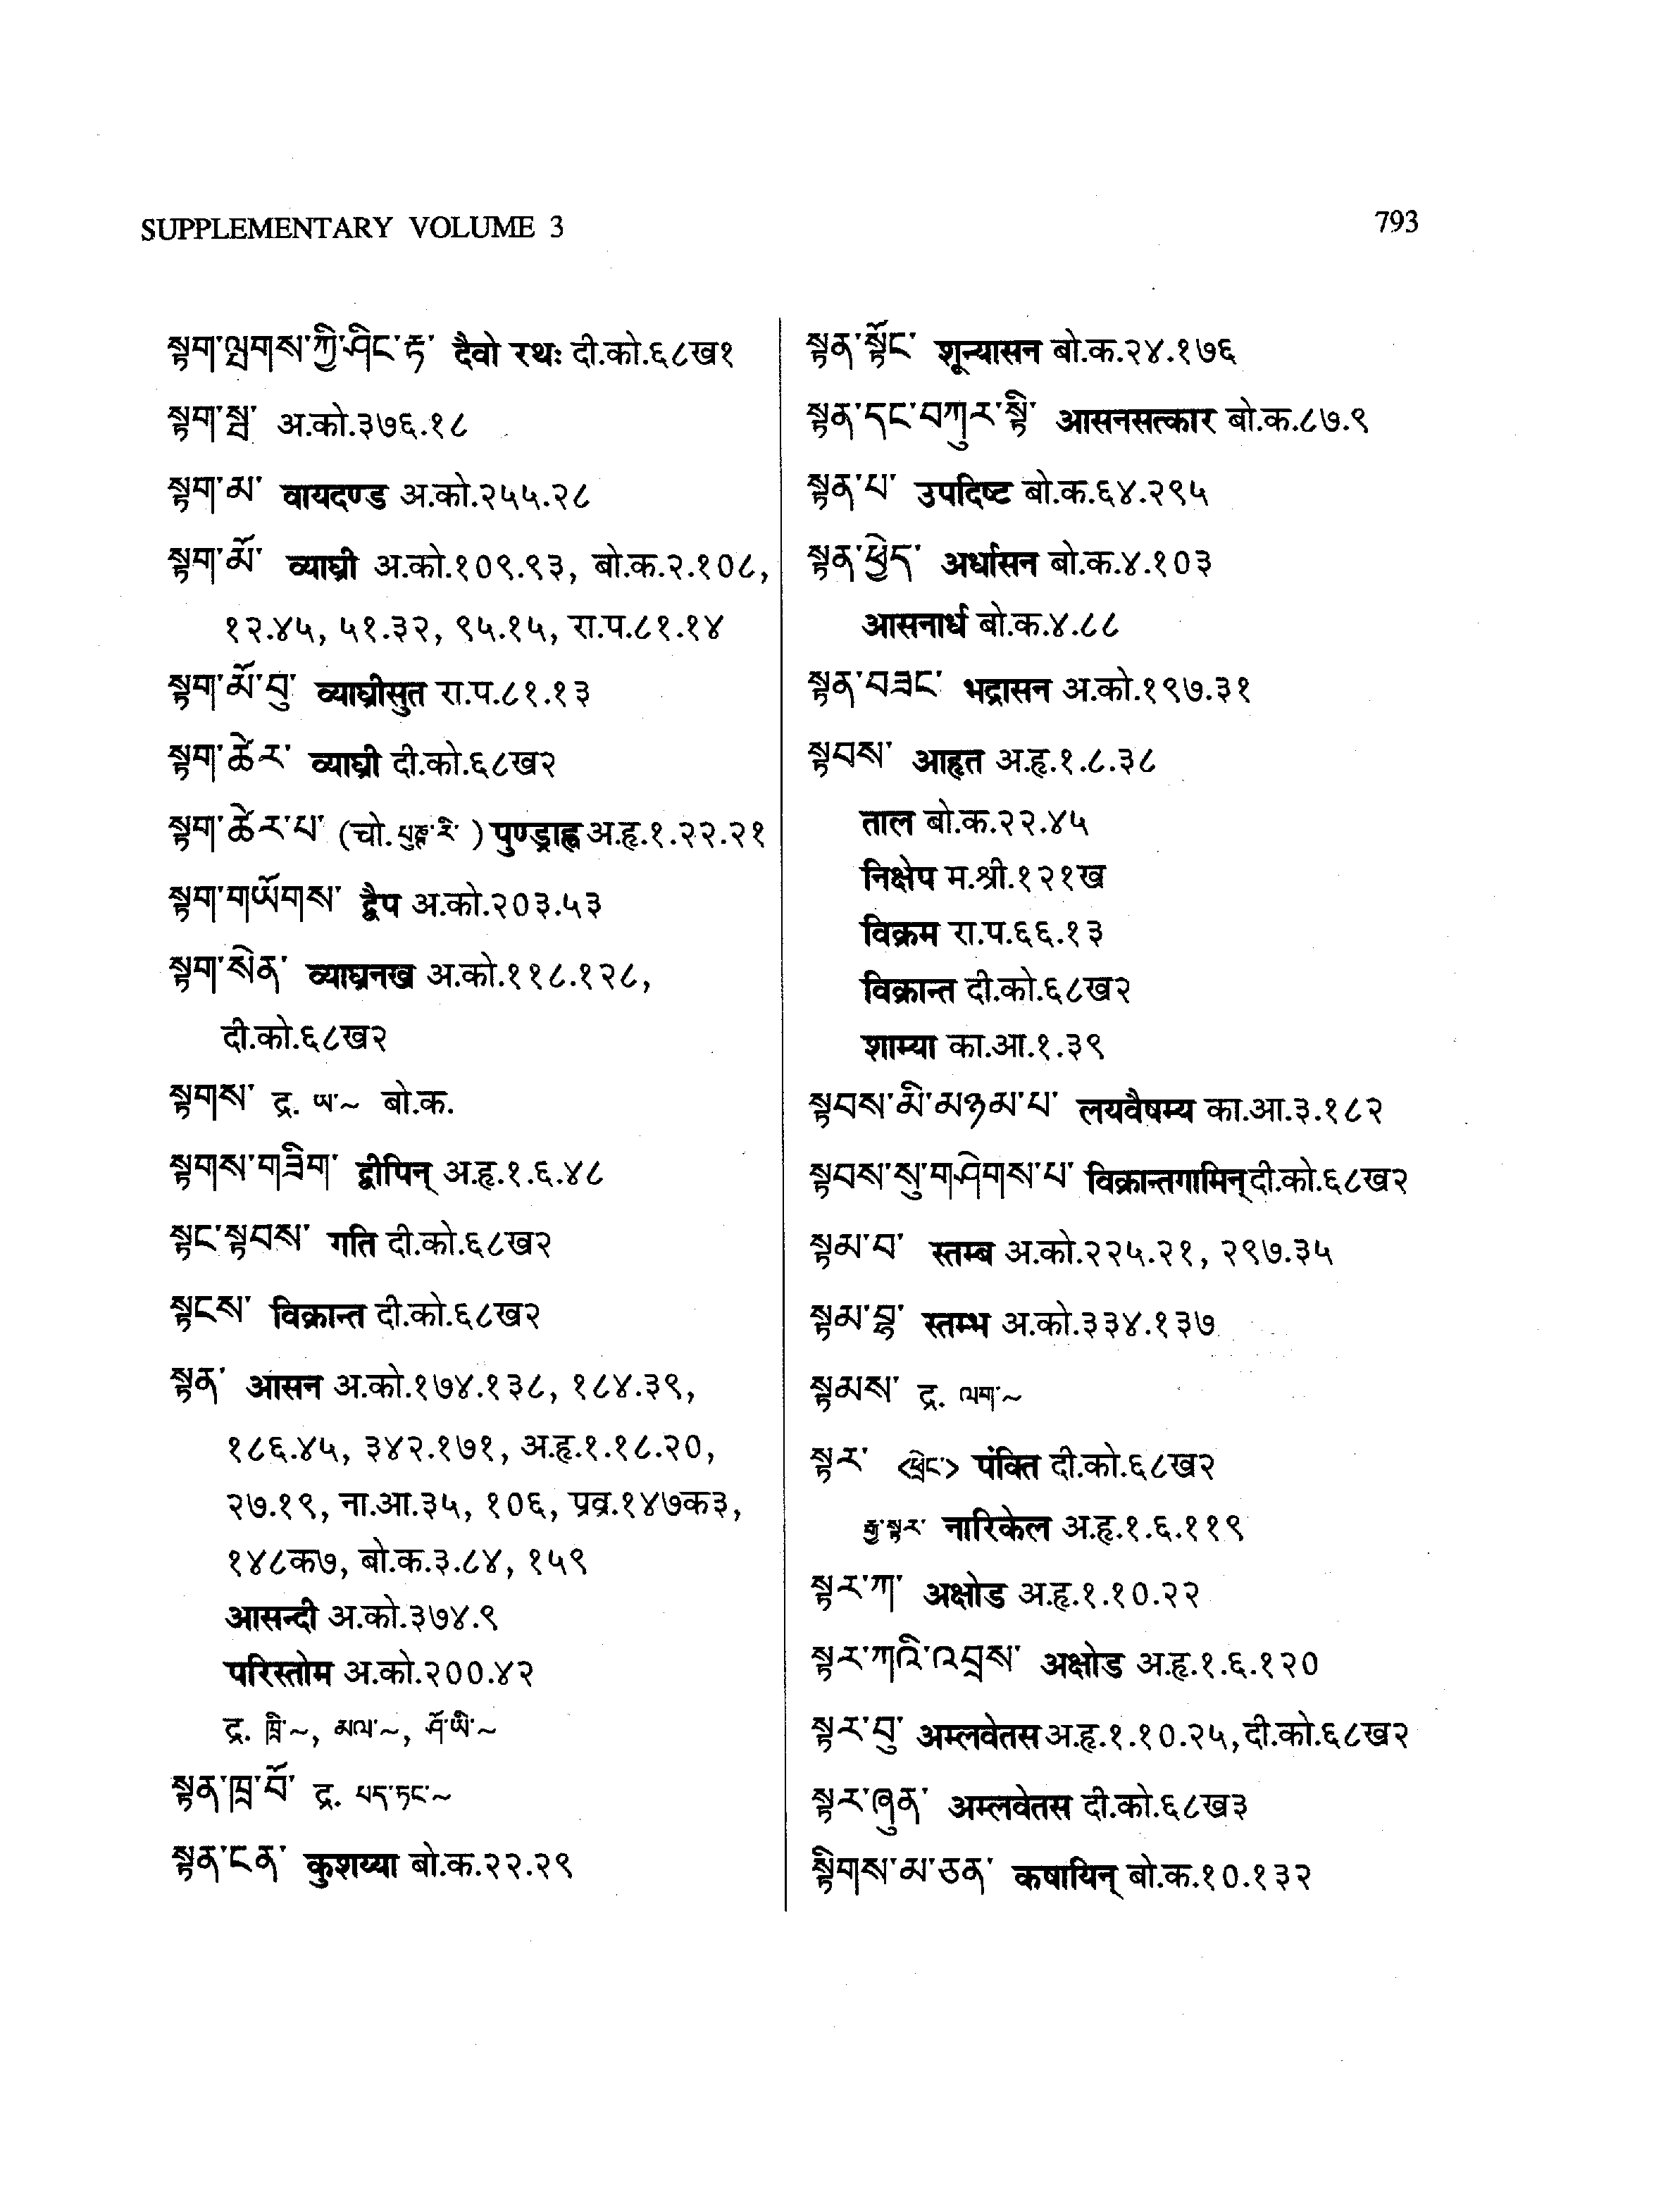 SUPPLEMENTARY VOLUME 3
793
སྟག་ལྤགས་ཀྱི་ཤིང་རྟ་ दैवो रथः दी.को.६८ख१
སྟག་སྦྲ་ अ.को.३७६.१८
སྟག་མ་ वायदण्ड अ.को.२५५.२८
སྟག་མོ་ व्याघ्री अ.को.१०९.९३, बो.क.२.१०८,
१२.४५, ५१.३२, ९५.१५, रा.प.८१.१४
སྟག་མོ་བུ་ व्याघ्रीसुत रा.प.८१.१३
སྟག་ཚེར་ व्याघ्री दी.को.६८ख२
སྟག་ཚེར་པ་ (चो. ) पुण्ड्राह्व अ.हृ.१.२२.२१
སྟག་གཡོགས་ द्वैप अ.को.२०३.५३
སྟག་སེན་ व्याघ्रनख अ.को.११८.१२८,
दी.को.६८ख२
སྟགས་ द्र. ཡ་~ बो.क.
སྟགས་གཟིག་ द्वीपिन् अ.हृ.१.६.४८
སྟང་སྟབས་ गति दी.को.६८ख२
སྟངས་ विक्रान्त दी.को.६८ख२
སྟན་ आसन अ.को.१७४.१३८, १८४.३९,
१८६.४५, ३४२.१७१, अ.हृ.१.१८.२०,
२७.१९, ना.आ.३५, १०६, प्रव्र.१४७क३,
१४८क७, बो.क.३.८४, १५९
आसन्दी अ.को.३७४.९
परिस्तोम अ.को.२००.४२
द्र. ཁྲི་~, མལ་~, ཤོ་ཡི་~
སྟན་ཁྲ་བོ་ द्र. པད་ཏང་~
སྟན་ངན་ कुशय्या बो.क.२२.२९
སྟན་སྟོང་ शून्यासन बो.क.२४.१७६
སྟན་དང་བཀུར་སྟི་ आसनसत्कार बो.क.८७.९
སྟན་པ་ उपदिष्ट बो.क.६४.२९५
སྟན་ཕྱེད་ अर्धासन बो.क.४.१०३
आसनार्ध बो.क.४.८८
སྟན་བཟང་ भद्रासन अ.को.१९७.३१
སྟབས་ आहृत अ.हृ.१.८.३८
ताल बो.क.२२.४५
निक्षेप म.श्री.१२१ख
विक्रम रा.प.६६.१३
विक्रान्त दी.को.६८ख२
शाम्या का.आ.१.३९
སྟབས་མི་མཉམ་པ་ लयवैषम्य का.आ.३.१८२
སྟབས་སུ་གཤེགས་པ་ विक्रान्तगामिन् दी.को.६८ख२
སྟམ་བ་ स्तम्ब अ.को.२२५.२१, २९७.३५
སྟམ་བྷ་ स्तम्भ अ.को.३३४.१३७
སྟམས་ द्र. ལག་~
སྟར་ <ཕྲེང་> पंक्ति दी.को.६८ख२
རྒྱ་སྟར་ नारिकेल अ.हृ.१.६.११९
སྟར་ཀ་ अक्षोड अ.हृ.१.१०.२२
སྟར་ཀའི་འབྲས་ अक्षोड अ.हृ.१.६.१२०
སྟར་བུ་ अम्लवेतस अ.हृ.१.१०.२५, दी.को.६८ख२
སྟར་ཞུན་ अम्लवेतस दी.को.६८ख३
སྟིགས་མ་ཅན་ कषायिन् बो.क.१०.१३२